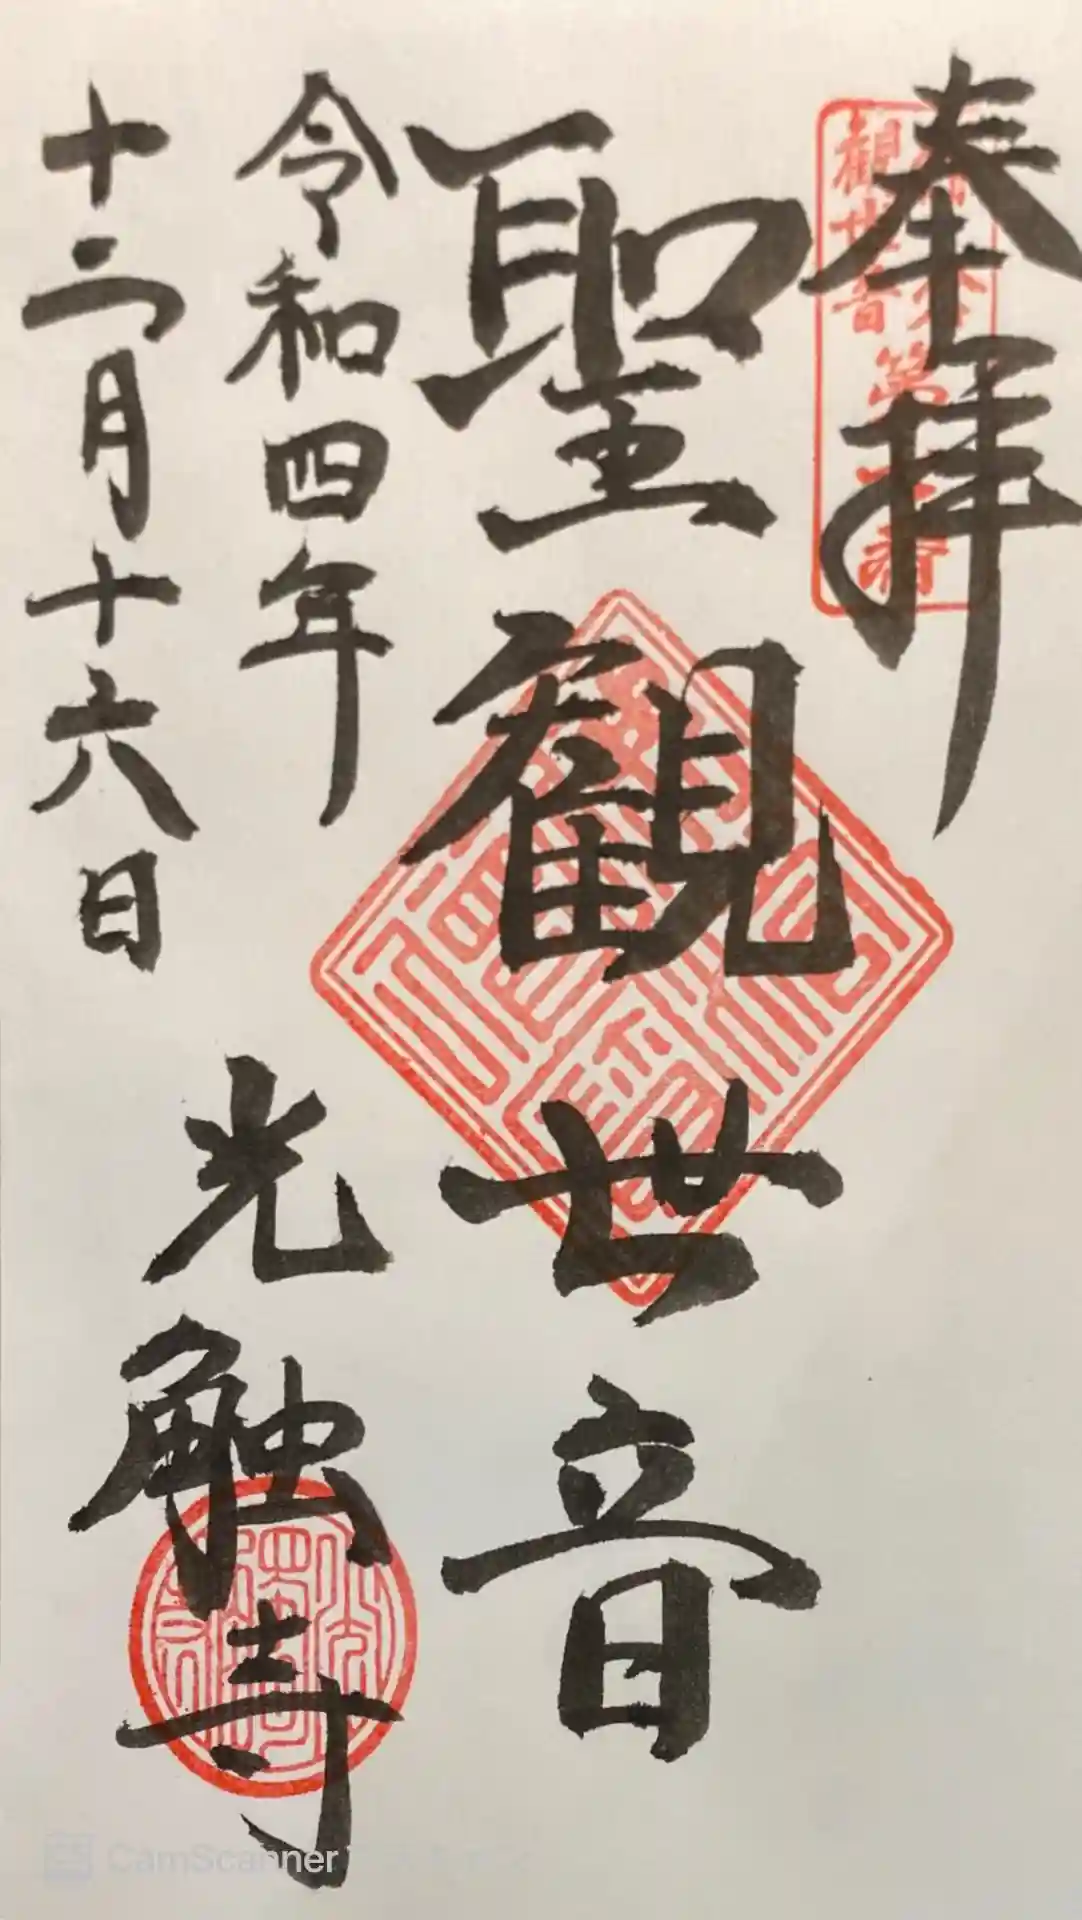 奉拝
聖観世音
令和四年
十二月十六日
光触寺
観世音
CamScanner